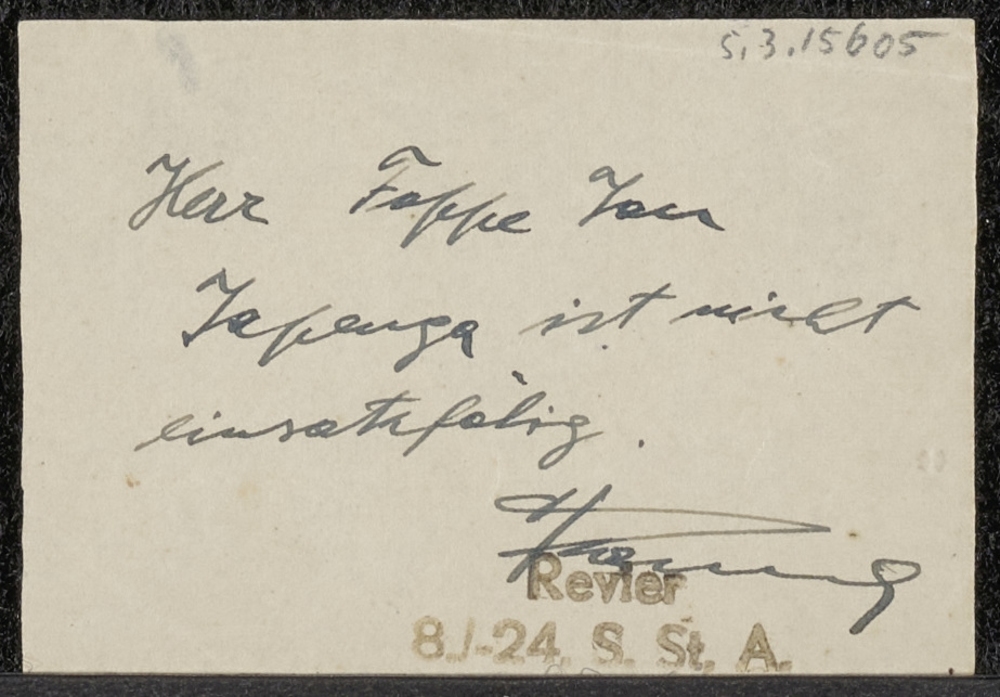 S.3.15605
Herr Foppe Jan
Japenga ist nicht
einsatzfähig.
Revier
8./-24. S. St. A.